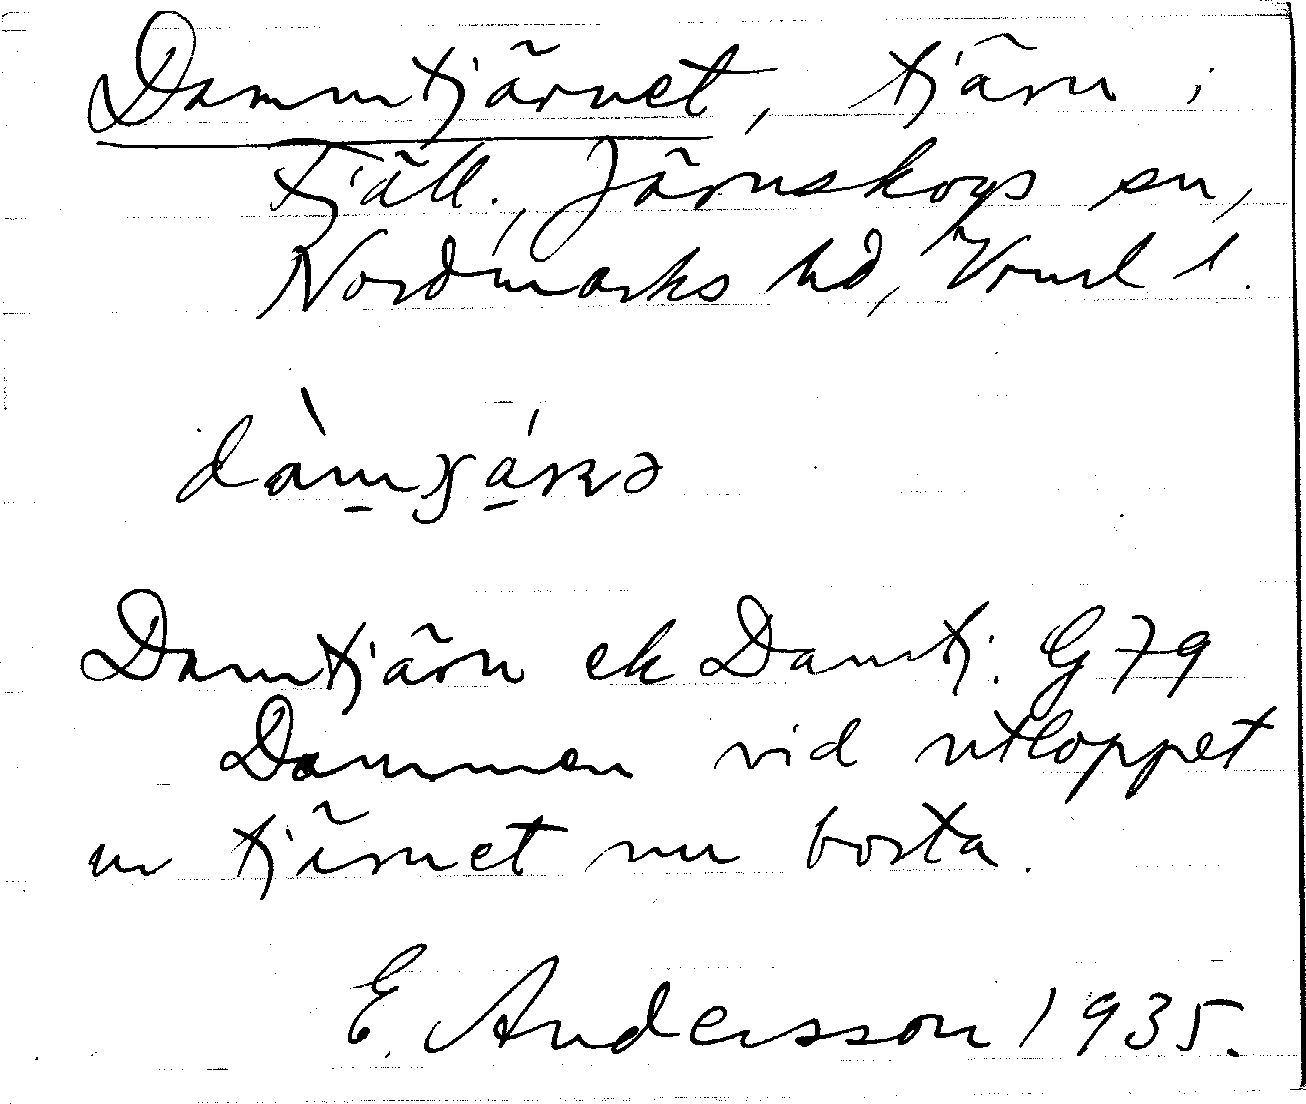 Dammtjärnet, tjärn i
Fjäll., Järnskogs sn,
Nordmarks hd, Vrml l.
Damtjärn ek Damtj. G 79
Dammen vid utloppet
ur tjärnet nu borta.
E. Andersson 1935.